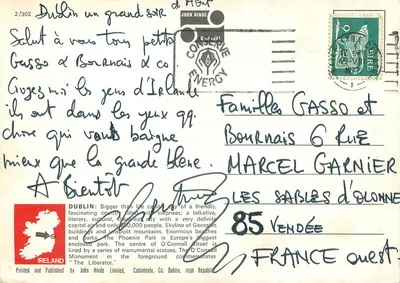 2/302
Dublin un grand soir d'Août
Salut à vous tous petits
Gasso & Bournais & co
les yeux d'Irlande
ils ont dans les yeux qq.
chose qui vous baigne
mieux que la grande bleue.
A Bientôt
JOHN HINDE
CONSERVE
ENERGY
EIRE
Familles GASSO et
BOURNAIS 6 RUE
MARCEL GARNIER
LES SABLES D'OLONNE
85 VENDÉE
FRANCE ouest.
DUBLIN: Bigger than life of a friendly,
fascinating surprises; a talkative,
literary, with a very definite
capital 000 people. Skyline of Georgian
buildings and Enormous beaches
and parks. The Phoenix Park is Europe's biggest
enclose park. The centre of O'Connell street is
lined by a series of monumental statues. The O'Connell
Monument in the foreground commemorates
"The Liberator."
IRELAND
Printed and Published by John Hinde Limited, Cabinteely, Co. Dublin, Irish Republic